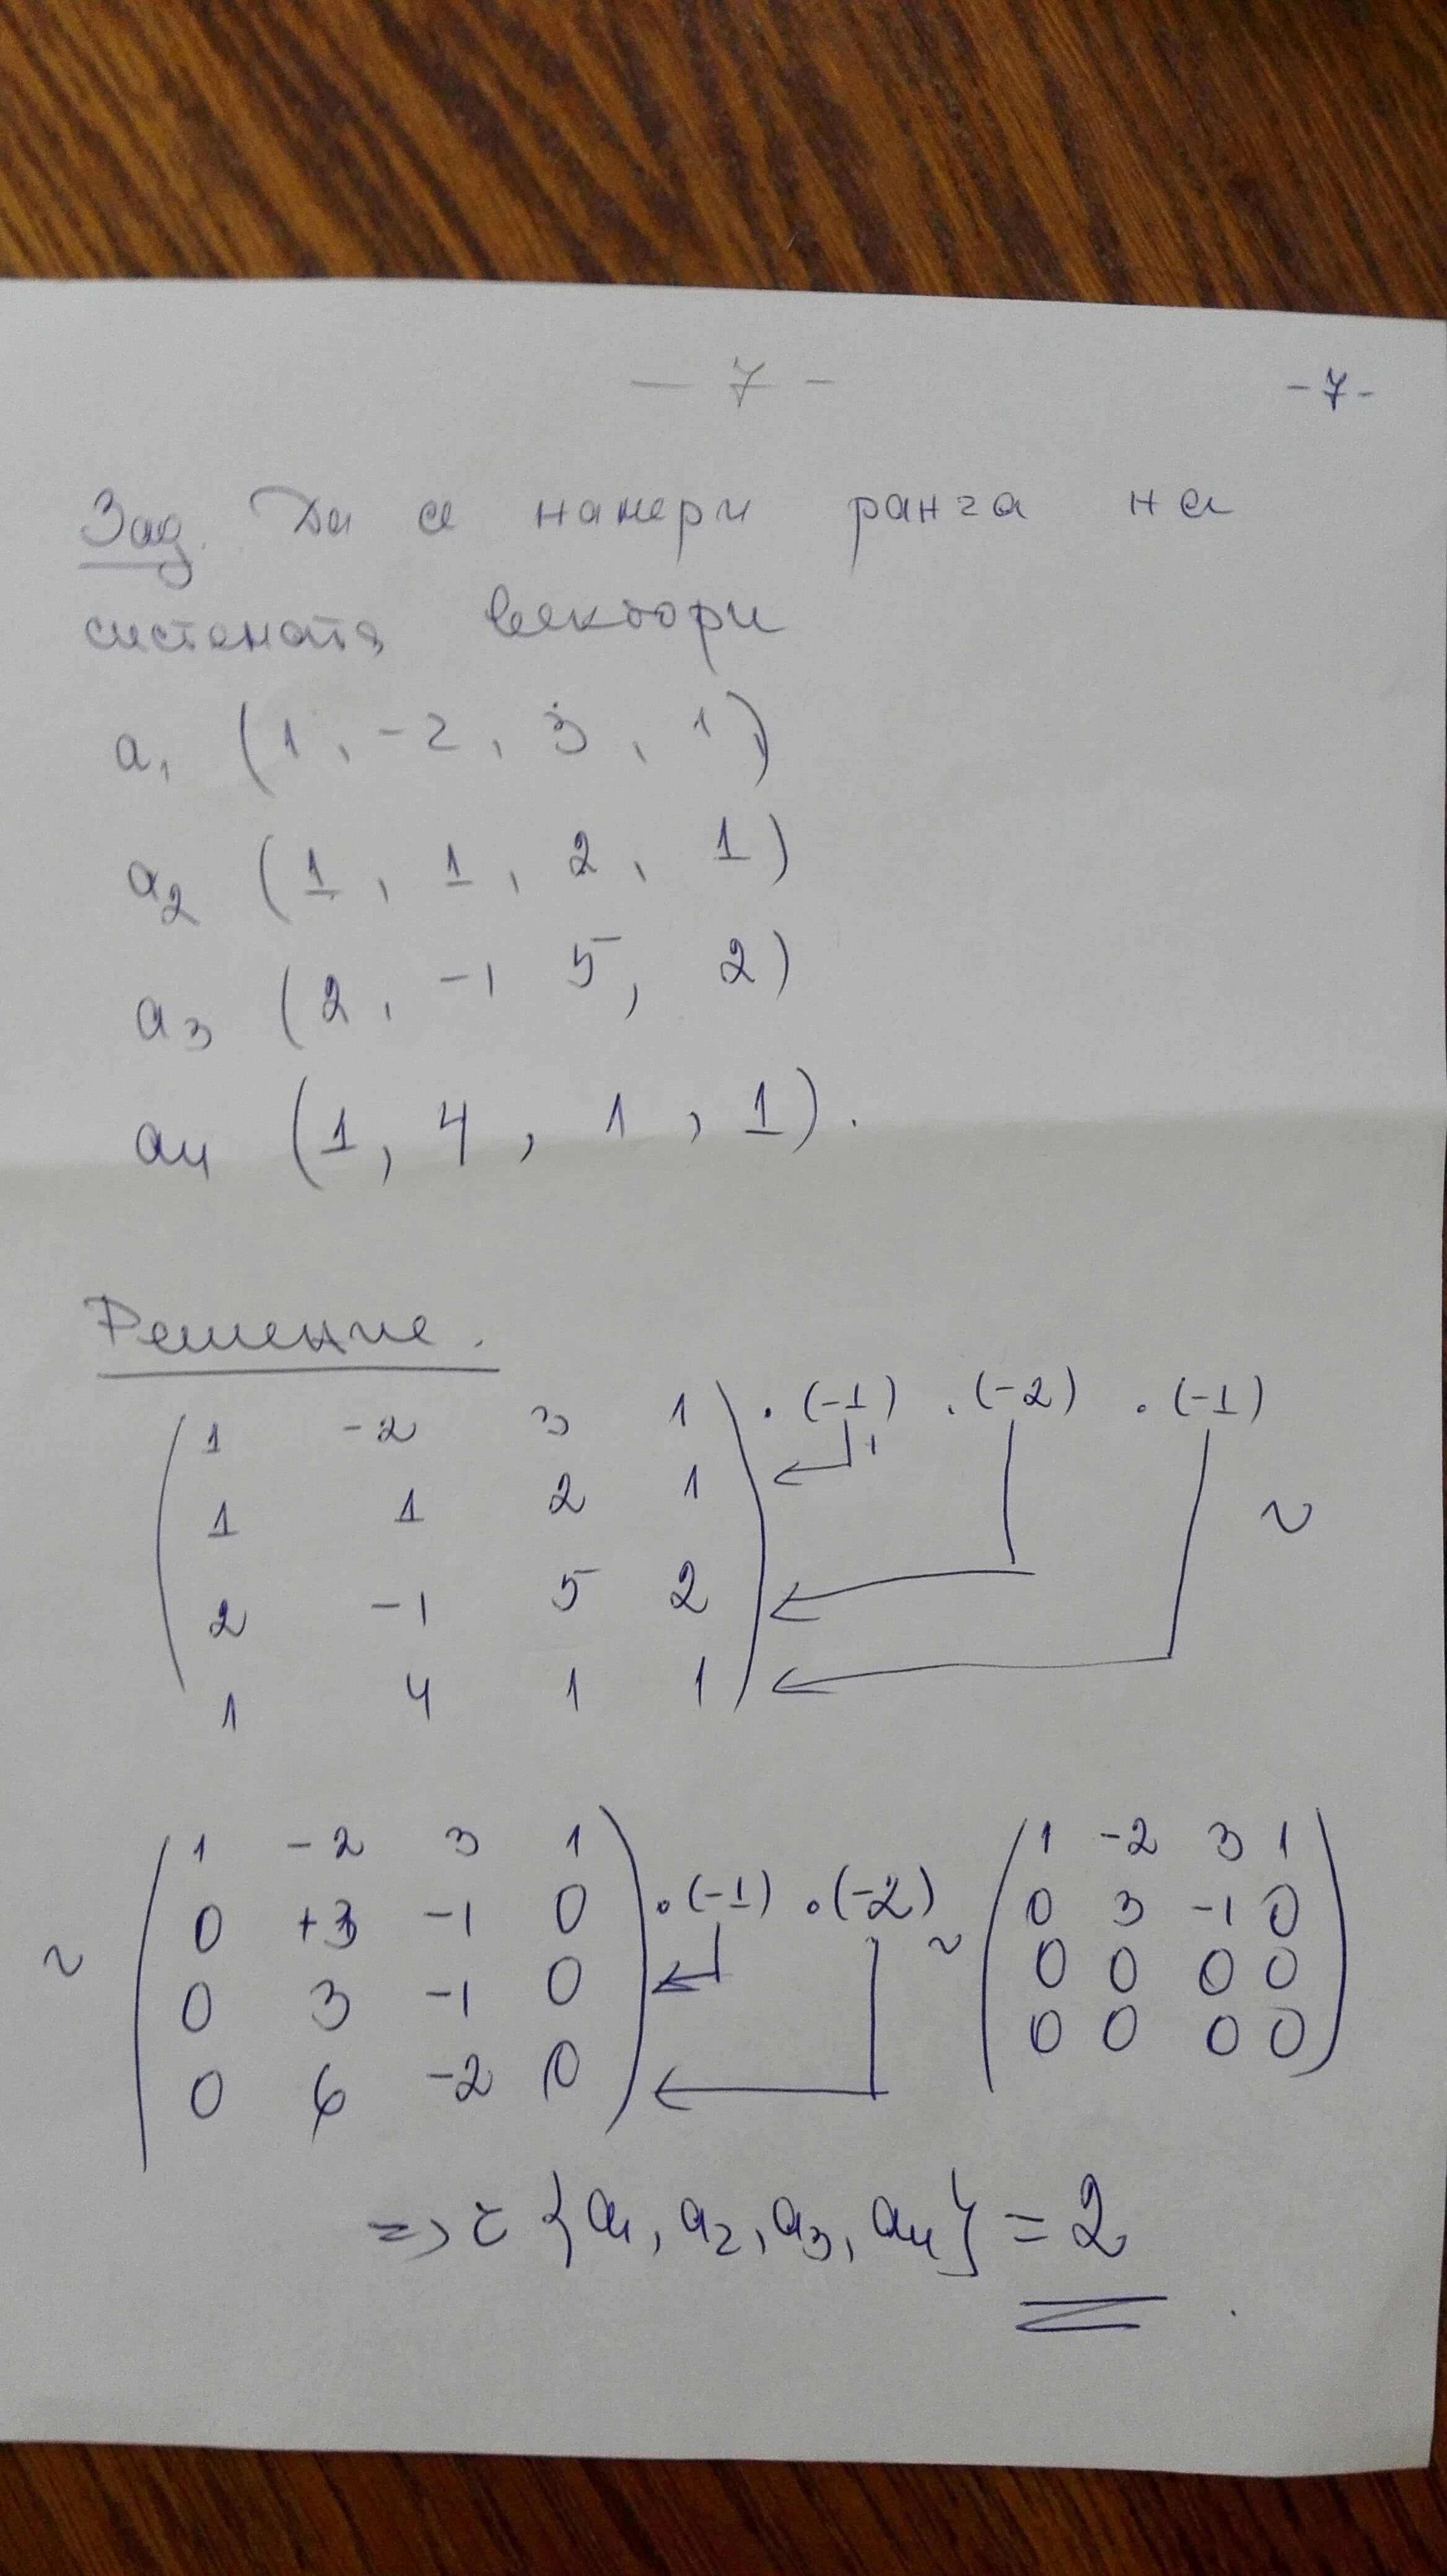 - 7 -
- 7 -
Зад. Да се намери ранга на
системата вектори
a₁ (1, -2, 3, 1)
a₂ (1, 1, 2, 1)
a₃ (2, -1 5, 2)
a₄ (1, 4, 1, 1).
Решение.
1 -2 3 1 . (-1) . (-2) . (-1)
1 1 2 1 +
2 -1 5 2 ~
1 4 1 1
1 -2 3 1
0 +3 -1 0 . (-1) . (-2)
~ 0 3 -1 0
0 6 -2 0
~ 1 -2 3 1
0 3 -1 0
0 0 0 0
0 0 0 0
=> r {a₁, a₂, a₃, a₄} = 2